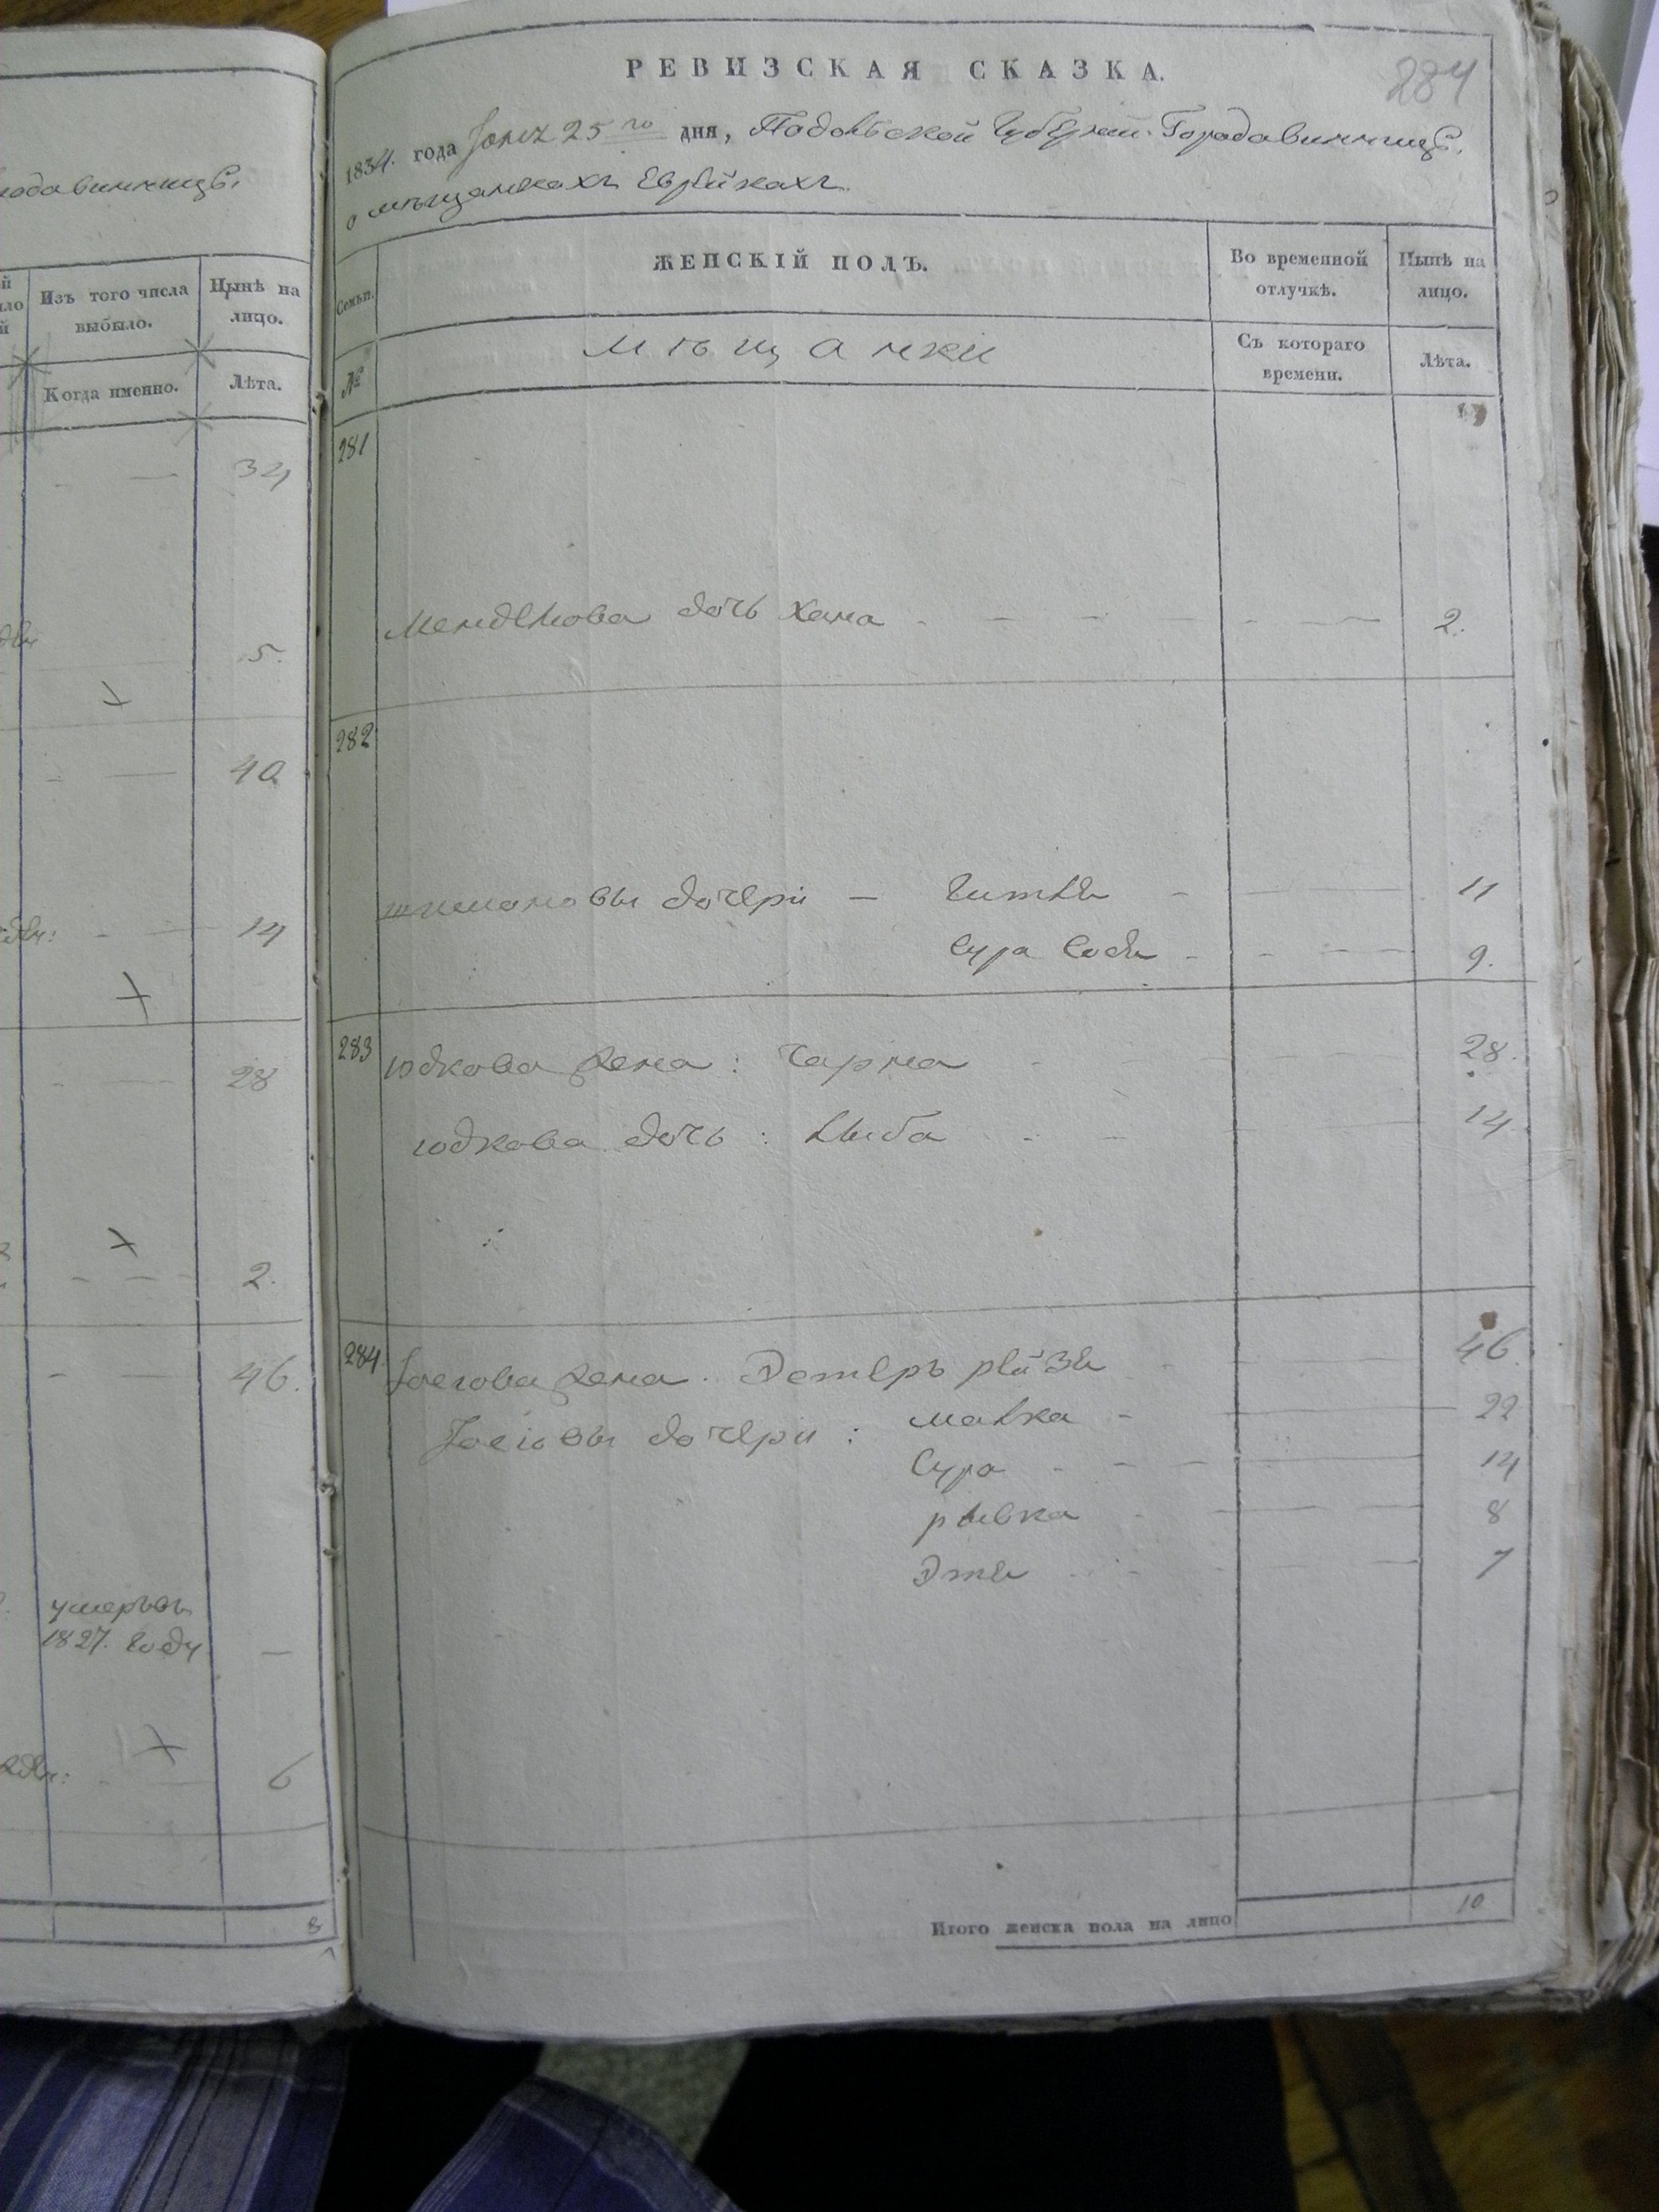 родавинницѣ.
Изъ того числа выбыло.
Нынѣ на лицо.
Когда именно.
Лѣта.
34
5.
40
14
28
2.
46.
умеръ въ
1827. году
—
6
8
284
РЕВИЗСКАЯ СКАЗКА.
1834. года Іюня 25го дня, Подольской Губерніи Города Винницѣ.
о мѣщанкахъ Еврейкахъ.
Семьи.
ЖЕНСКІЙ ПОЛЪ.
Во временной отлучкѣ.
Нынѣ на лицо.
№
Мѣщанки
Съ котораго времени.
Лѣта.
281
Менделова дочь Хана - - - - 2.
282
шимановы дочери — Гитля - 11
Сура Собля - 9.
283 юдкова жена: Чарна - 28.
юдкова дочь: Лыба - - 14
284. Іосгова жена. Эстеръ рейзя - 46.
Іосіовы дочери: малка - 22
Сура - - - 14
рывка - 8
Этля - - 7
Итого женска пола на лицо 10